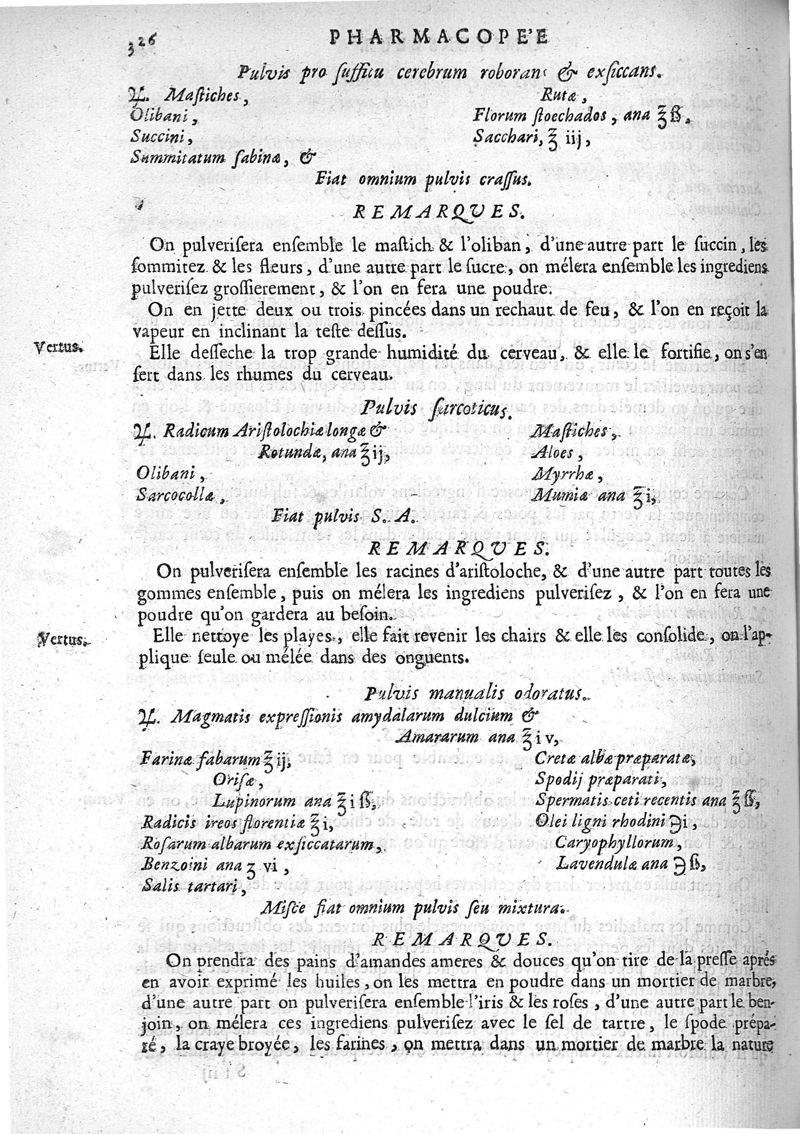 326 PHARMACOPE'E
Pulvis pro ſuffitu cerebrum roborans & exſiccans.
♃. Maſtiches,
Olibani,
Succini,
Summitatum ſabinæ, &
Rutæ,
Florum ſtoechados, ana ℥ ß,
Sacchari, ℥ iij,
Fiat omnium pulvis craſſus.
REMARQUES.
On pulveriſera enſemble le maſtich & l'oliban, d'une autre part le ſuccin, les
ſommitez & les fleurs, d'une autre part le ſucre, on mélera enſemble les ingrediens
pulveriſez groſſierement, & l'on en fera une poudre.
On en jette deux ou trois pincées dans un rechaut de feu, & l'on en reçoit la
vapeur en inclinant la teſte deſſus.
Vertus. Elle deſſeche la trop grande humidité du cerveau, & elle le fortifie, on s'en
ſert dans les rhumes du cerveau.
Pulvis ſarcoticus.
♃. Radicum Ariſtolochiæ longæ &
Rotundæ, ana ℥ ij,
Olibani,
Sarcocollæ,
Maſtiches,
Aloes,
Myrrhæ,
Mumiæ ana ℥ i,
Fiat pulvis S. A.
REMARQUES.
On pulveriſera enſemble les racines d'ariſtoloche, & d'une autre part toutes les
gommes enſemble, puis on mélera les ingrediens pulveriſez, & l'on en fera une
poudre qu'on gardera au beſoin.
Vertus. Elle nettoye les playes, elle fait revenir les chairs & elle les conſolide, on l'ap-
plique ſeule ou mélée dans des onguents.
Pulvis manualis odoratus.
♃. Magmatis expreſſionis amydalarum dulcium &
Amararum ana ℥ iv,
Farinæ fabarum ℥ ij,
Oriſæ,
Lupinorum ana ℥ i ß,
Radicis ireos florentiæ ℥ i,
Roſarum albarum exſiccatarum,
Benzoini ana ʒ vi,
Salis tartari,
Cretæ albæ præparatæ,
Spodij præparati,
Spermatis ceti recentis ana ℥ ß,
Olei ligni rhodini ℈ i,
Caryophyllorum,
Lavendulæ ana ℈ ß,
Miſce fiat omnium pulvis ſeu mixtura.
REMARQUES.
On prendra des pains d'amandes ameres & douces qu'on tire de la preſſe aprés
en avoir exprimé les huiles, on les mettra en poudre dans un mortier de marbre,
d'une autre part on pulveriſera enſemble l'iris & les roſes, d'une autre part le ben-
join, on mélera ces ingrediens pulveriſez avec le ſel de tartre, le ſpode prépa-
ré, la craye broyée, les farines, on mettra dans un mortier de marbre la nature